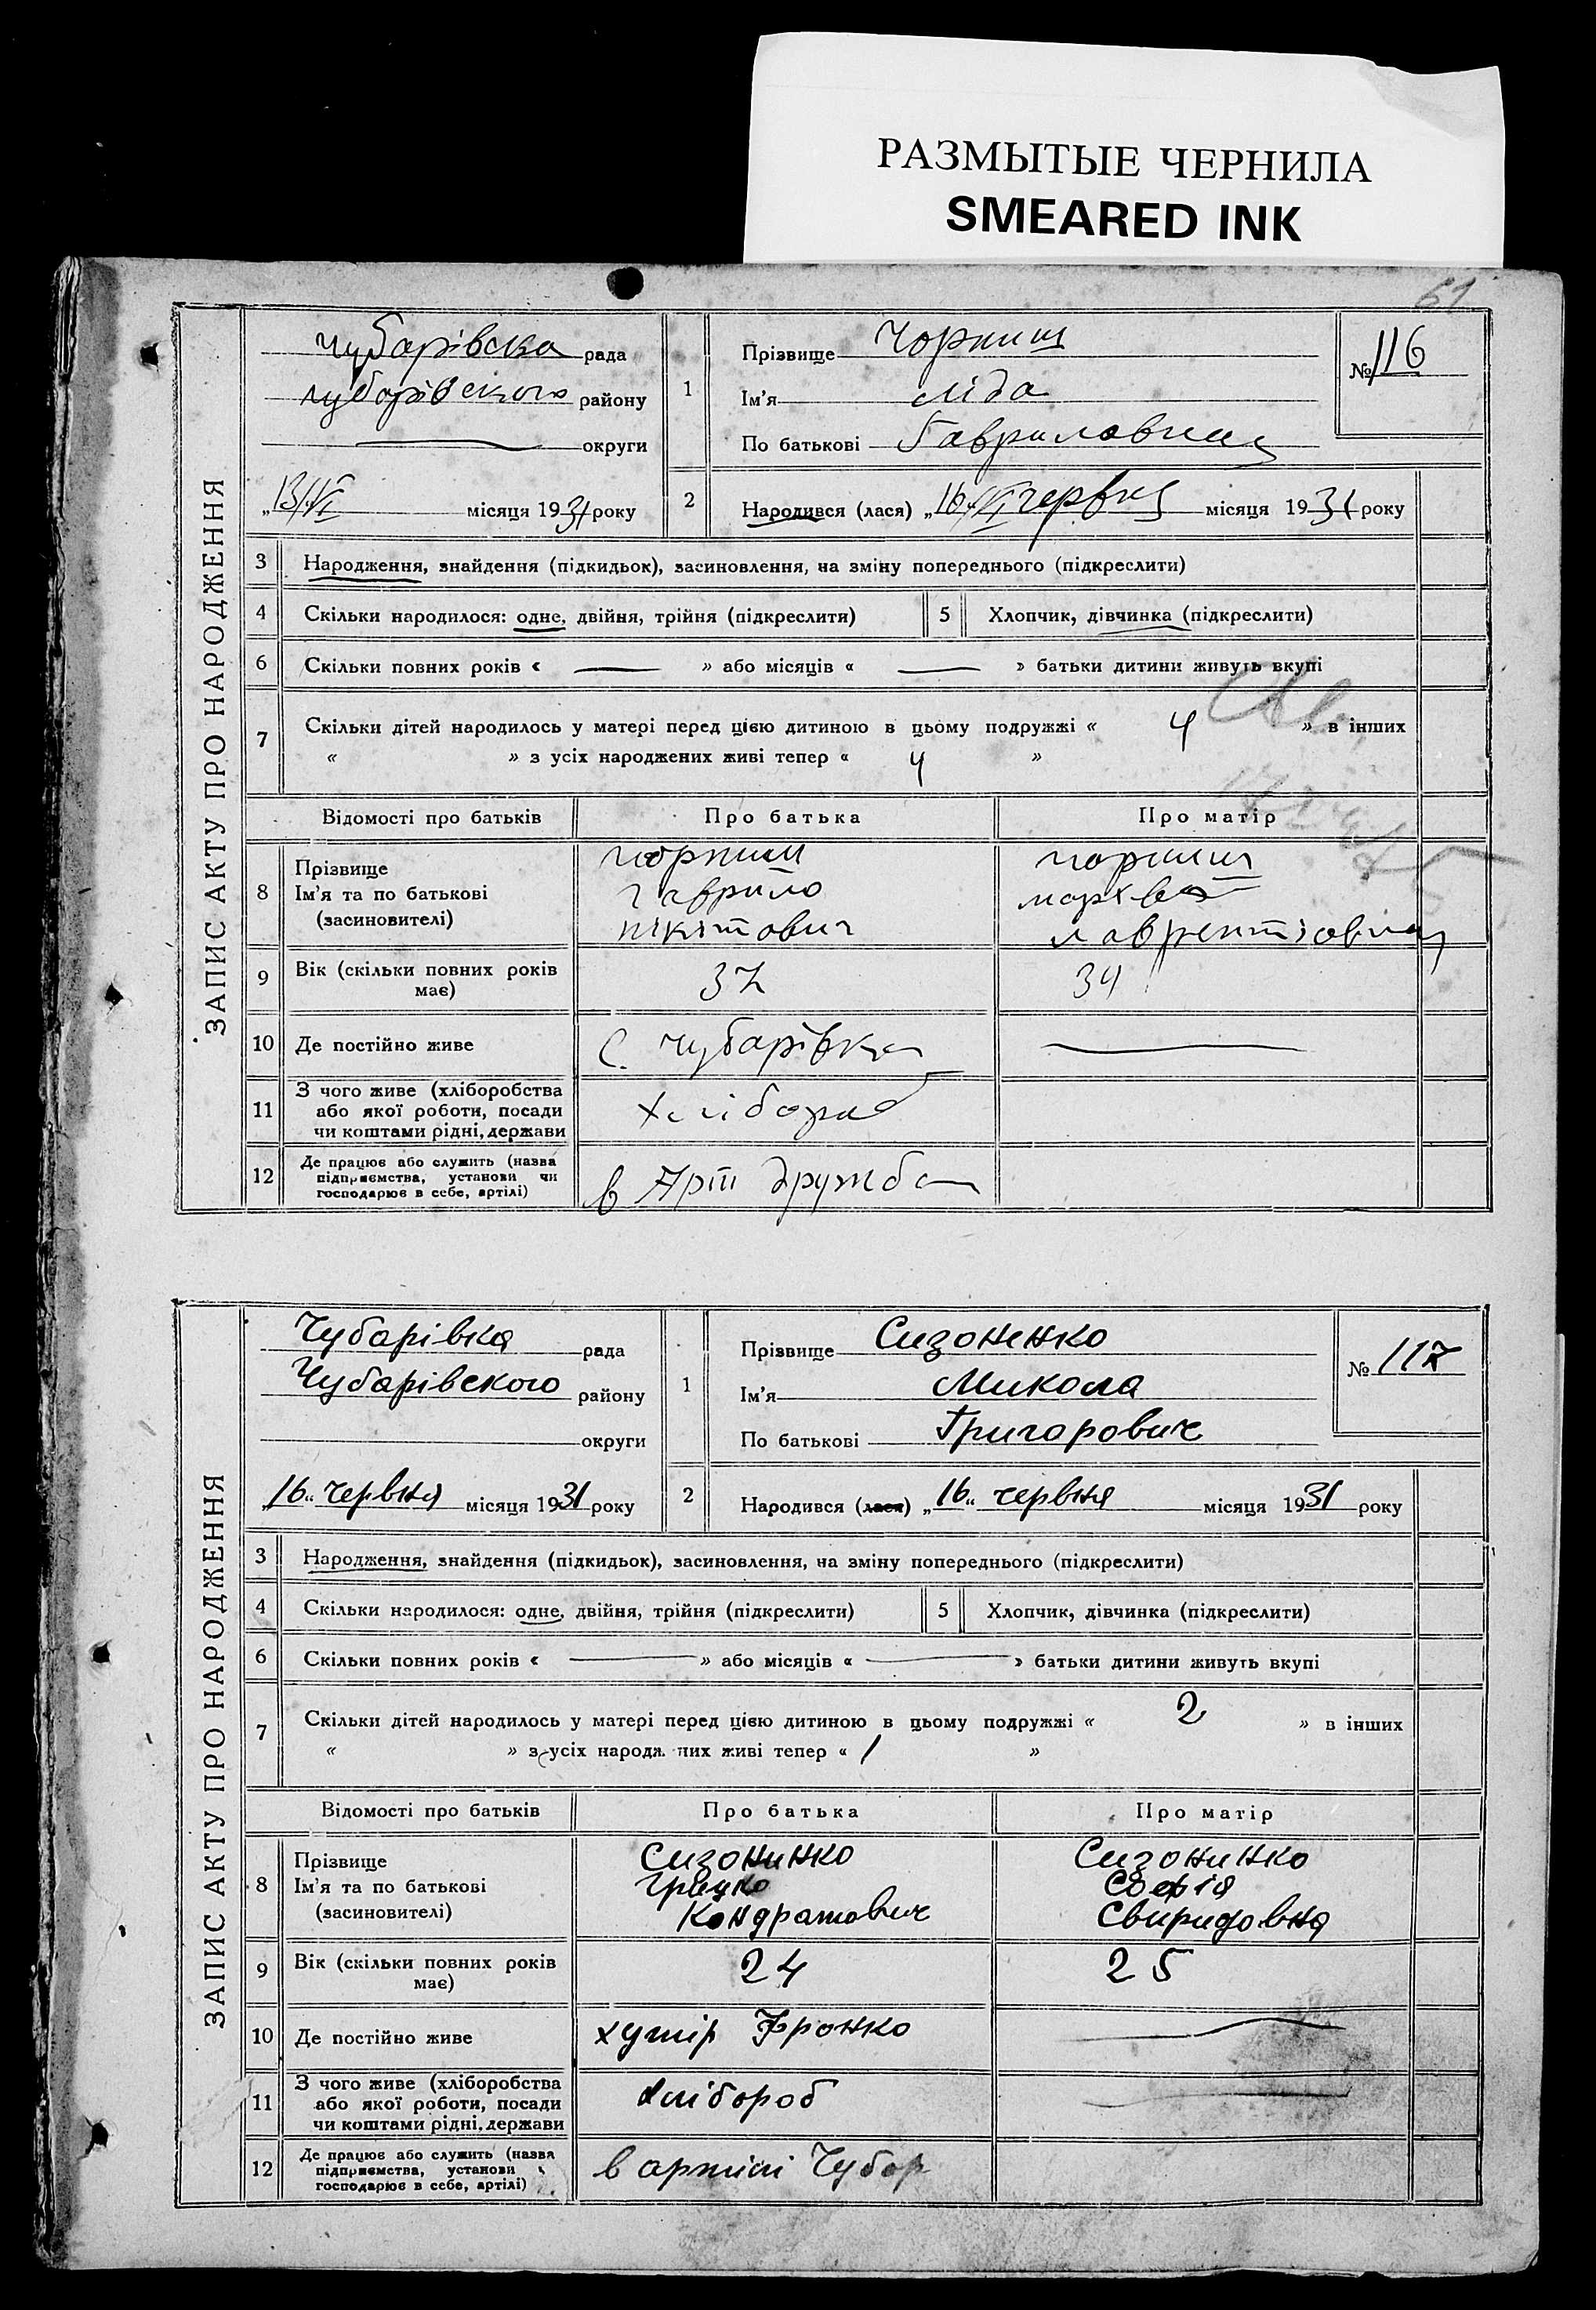 РАЗМЫТЫЕ ЧЕРНИЛА
SMEARED INK
61
ЗАПИС АКТУ ПРО НАРОДЖЕННЯ
Чубарівска рада
Чубарівського району
округи
„13/VI місяця 1931 року
1
Прізвище Чорниш
Ім'я Ліда
По батькові Гавриловна
№ 116
2
Народився (лася) „16/VI червня місяця 1931 року
3 Народження, знайдення (підкидьок), засиновлення, на зміну попереднього (підкреслити)
4 Скільки народилося: одне, двійня, трійня (підкреслити) 5 Хлопчик, дівчинка (підкреслити)
6 Скільки повних років « — » або місяців « — » батьки дитини живуть вкупі
7 Скільки дітей народилось у матері перед цією дитиною в цьому подружжі « 4 » в інших
« » з усіх народжених живі тепер « 4 »
Відомості про батьків Про батька Про матір
8 Прізвище Ім'я та по батькові (засиновителі)
Чорниш Гаврило Нікітович
Чорниш Лаврентіовна
9 Вік (скільки повних років має) 37 34
10 Де постійно живе с. Чубарівка —
11 З чого живе (хліборобства або якої роботи, посади чи коштами рідні, держави Хлібороб
12 Де працює або служить (назва підприємства, установи чи господарює в себе, артілі) в Арт Дружба
ЗАПИС АКТУ ПРО НАРОДЖЕННЯ
Чубарівка рада
Чубарівского району
округи
„16„ червня місяця 1931 року
1
Прізвище Сизоненко
Ім'я Микола
По батькові Григорович
№ 117
2
Народився (лася) „16„ червня місяця 1931 року
3 Народження, знайдення (підкидьок), засиновлення, на зміну попереднього (підкреслити)
4 Скільки народилося: одне, двійня, трійня (підкреслити) 5 Хлопчик, дівчинка (підкреслити)
6 Скільки повних років « — » або місяців « — » батьки дитини живуть вкупі
7 Скільки дітей народилось у матері перед цією дитиною в цьому подружжі « 2 » в інших
« » з усіх народжених живі тепер « 1 »
Відомості про батьків Про батька Про матір
8 Прізвище Ім'я та по батькові (засиновителі)
Сизонинко Грицко Кондратович
Сизонинко Софія Свиридовна
9 Вік (скільки повних років має) 24 25
10 Де постійно живе хутір Фронко —
11 З чого живе (хліборобства або якої роботи, посади чи коштами рідні, держави хлібороб —
12 Де працює або служить (назва підприємства, установи господарює в себе, артілі) в артілі Чубар